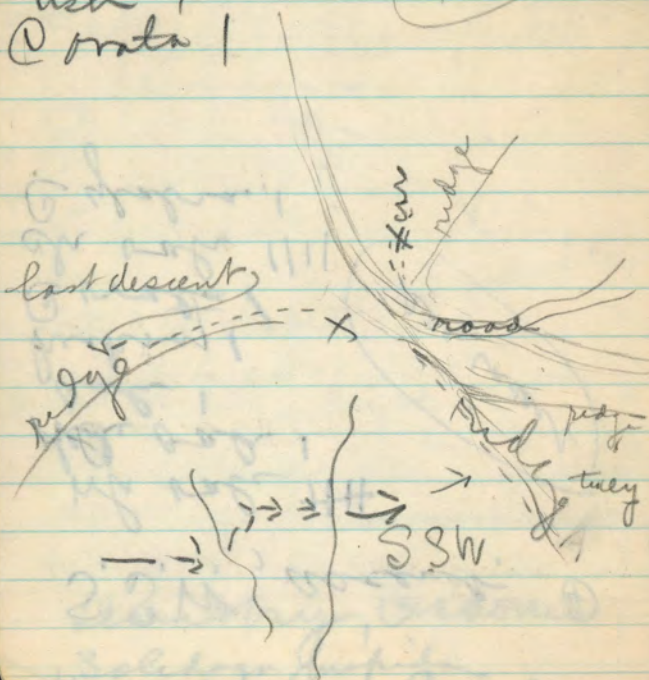 @ ovata 1
ridge
last descent
road
ridge
ridge
ridge
SSW